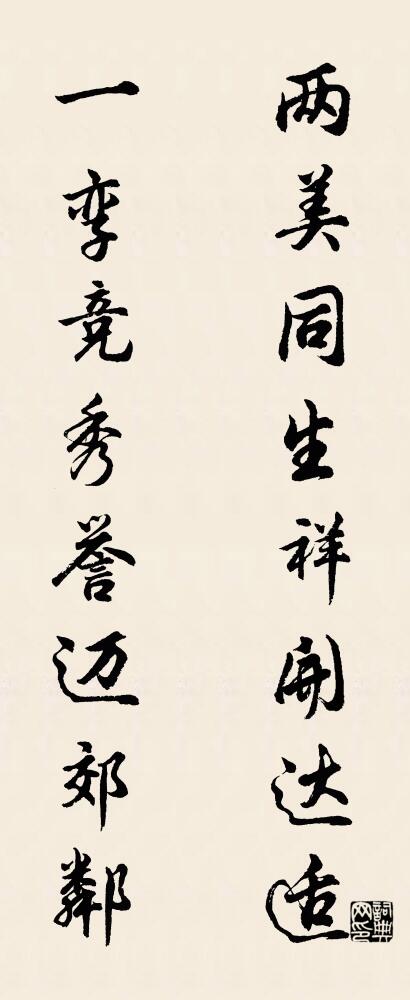 两美同生祥开达适
一孪竞秀誉迈郊鄰
詞典
网印